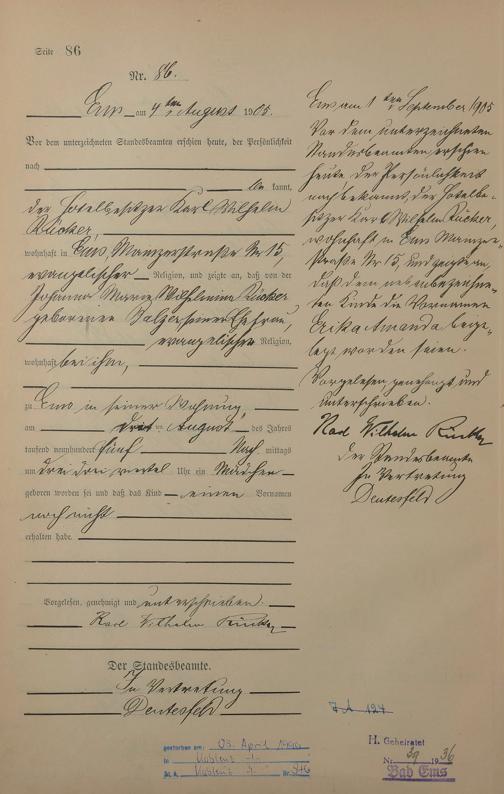 Seite 86
Nr. 86.
Ems am 4ten August 1905.
Vor dem unterzeichneten Standesbeamten erschien heute, der Persönlichkeit
nach
kannt,
der Hotelbesitzer Karl Wilhelm
Rücker,
wohnhaft in Ems, Mainzerstraße Nr 15,
evangelischer Religion, und zeigte an, daß von der
Johanna Maria Wilhelmina Rücker
geborenen seiner Ehefrau,
evangelischer Religion,
wohnhaft bei ihm,
zu Ems in seiner Wohnung,
am August des Jahres
tausend neunhundert fünf Nachmittags
um drei drei viertel Uhr ein Mädchen
geboren worden sei und daß das Kind einen Vornamen
noch nicht
erhalten habe.
Vorgelesen, genehmigt und unterschrieben.
Karl Wilhelm Rücker
Der Standesbeamte.
In Vertretung
Deutesfeld
Ems am 1ten September 1905
Vor dem unterzeichneten
Standesbeamten erschien
heute, der Persönlichkeit
nach bekannt, der Hotelbe-
sitzer Karl Wilhelm Rücker,
wohnhaft in Ems Mainzer-
straße Nr 15, und zeigte an,
daß dem nebenbezeichne-
ten Kinde die Vornamen
Erika Amanda beige-
legt worden seien.
Vorgelesen, genehmigt und
unterschrieben.
Karl Wilhelm Rücker
Der Standesbeamte
In Vertretung
Deutesfeld
gestorben am: 03. April
in Koblenz
St. A. Koblenz Nr.
H. Geheiratet
Nr. 39 1936
Bad Ems